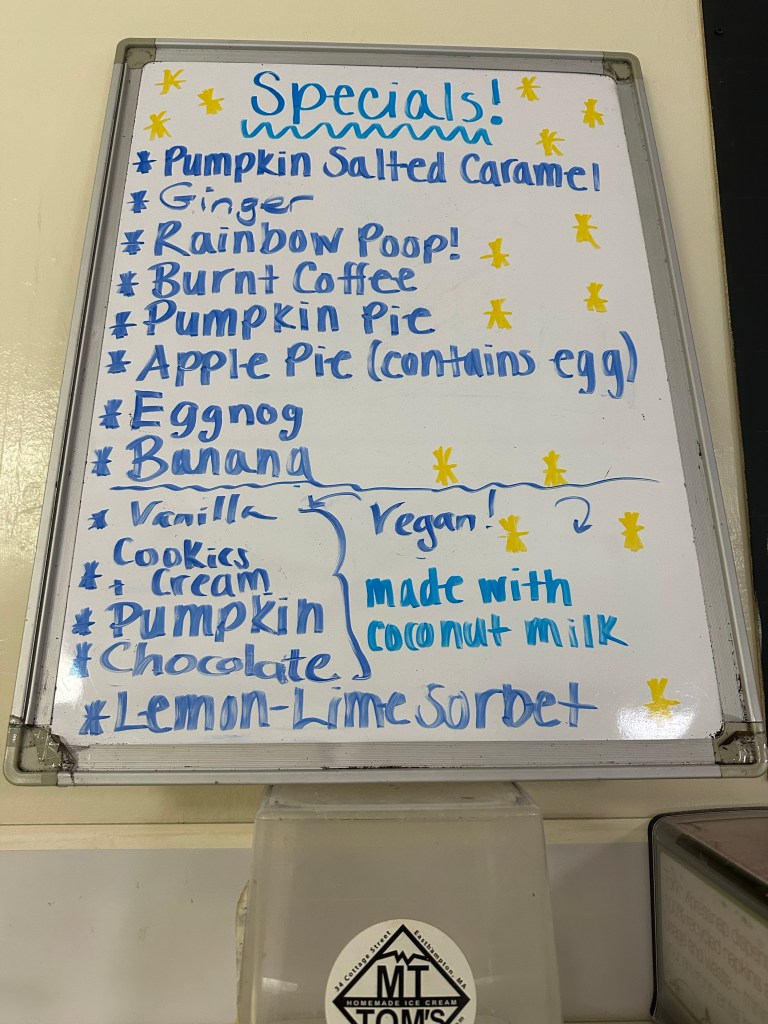 Specials!
* Pumpkin Salted Caramel
* Ginger
* Rainbow Poop!
* Burnt Coffee
* Pumpkin Pie
* Apple Pie (contains egg)
* Eggnog
* Banana
* Vanilla
Cookies
* + Cream
* Pumpkin
* Chocolate
Vegan!
made with
coconut milk
* Lemon-Lime Sorbet
34 Cottage Street Easthampton, MA
MT
HOMEMADE ICE CREAM
TOM'S